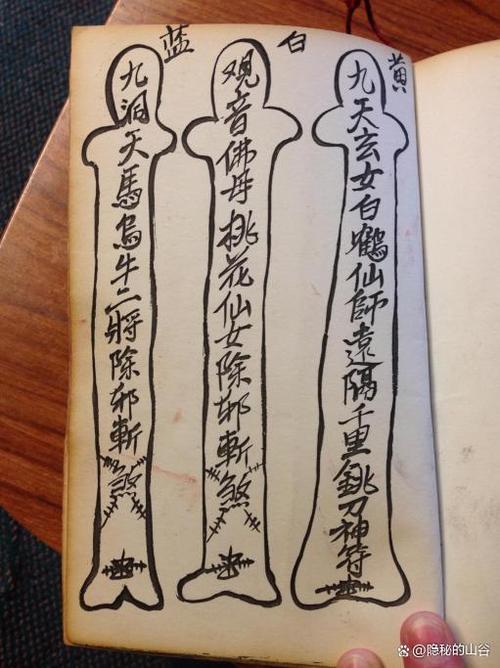 黄
九天玄女白鶴仙師遠隔千里銚刀神符
白
观音佛母桃花仙女除邪斬煞
蓝
九洞天馬烏牛二將除邪斬煞
@隐秘的山谷